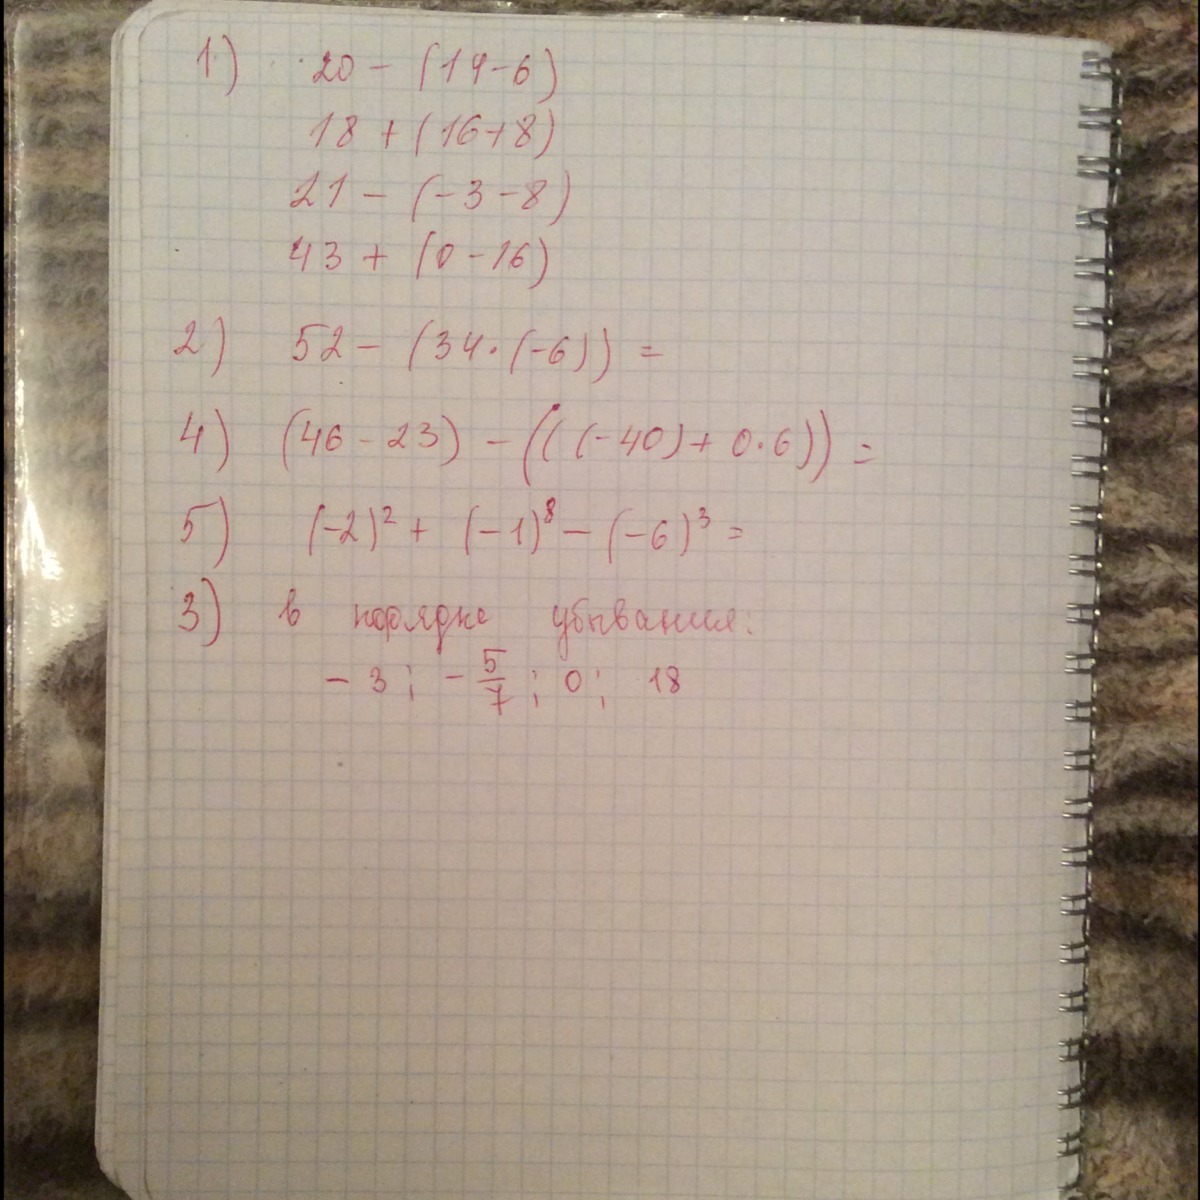 1) 20 - (14-6)
18 + (16+8)
21 - (-3-8)
43 + (0-16)
2) 52 - (34·(-6)) =
4) (46-23) - (((-40)+0·6)) =
5) (-2)² + (-1)⁸ - (-6)³ =
3) в порядке убывания:
-3; -5/7; 0; 18